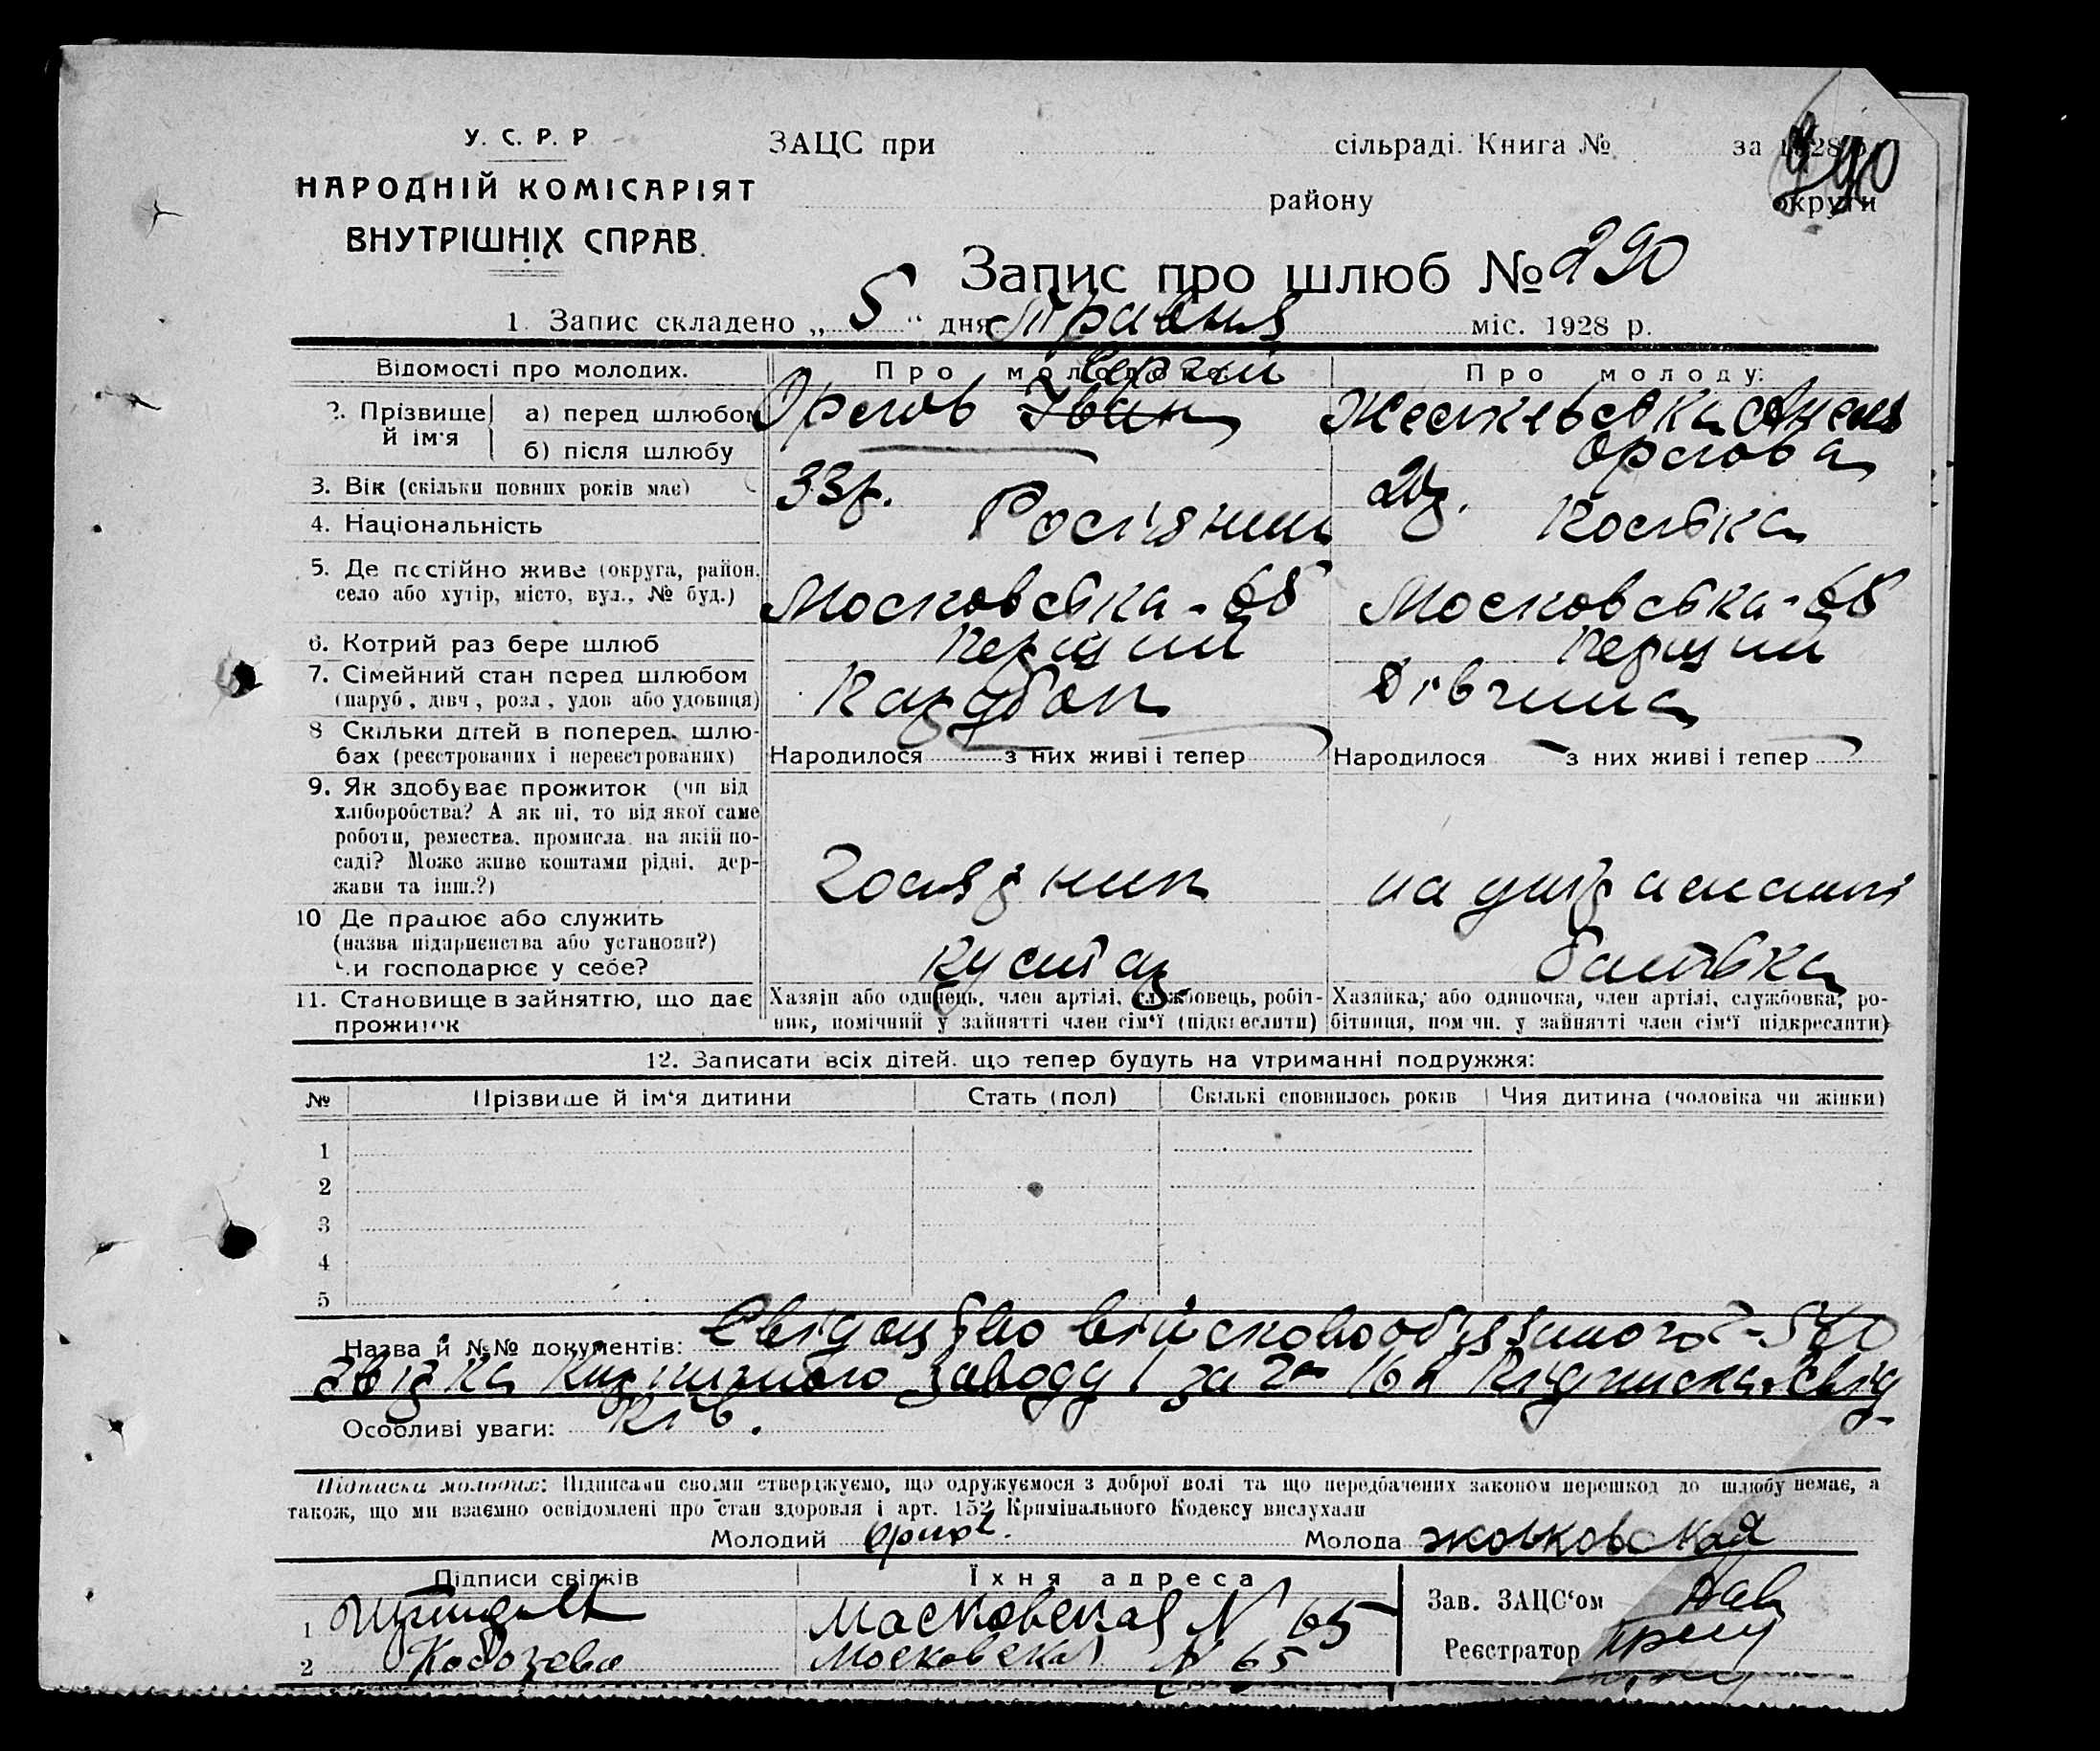 У. С. Р. Р
НАРОДНІЙ КОМІСАРІЯТ
ВНУТРІШНІХ СПРАВ.
ЗАЦС при сільраді. Книга № за 1928 р.
району округи
290
Запис про шлюб № 290
1. Запис складено „ 5 “ дня Травня міс. 1928 р.
Відомості про молодих. Про молодого: Про молоду:
Сергій
2. Прізвище й ім'я а) перед шлюбом Орлов Іван
б) після шлюбу Орлова
3. Вік (скільки повних років має) 33 р. 20 р.
4. Національність Росіянин Полька
5. Де постійно живе (округа, район, село або хутір, місто, вул., № буд.) Московська - 65 Московська - 65
6. Котрий раз бере шлюб Перший Перший
7. Сімейний стан перед шлюбом (паруб., дівч., розл., удов. або удовиця) Парубок Дівчина
8 Скільки дітей в поперед. шлюбах (реєстрованих і нереєстрованих) Народилося з них живі і тепер Народилося з них живі і тепер
9. Як здобуває прожиток (чи від хліборобства? А як ні, то від якої саме роботи, ремества, промисла, на якій посаді? Може живе коштами рідні, держави та інш.?) Голярник на утриманні
10 Де працює або служить (назва підприємства або установи?) Чи господарює у себе? кустар батька
11. Становище в зайняттю, що дає прожиток
Хазяїн або одинець, член артілі, службовець, робітник, помічний у зайнятті член сім'ї (підкреслити)
Хазяйка, або одиночка, член артілі, службовка, робітниця, помічн. у зайнятті член сім'ї підкреслити)
12. Записати всіх дітей, що тепер будуть на утриманні подружжя:
№ Прізвище й ім'я дитини Стать (пол) Скількі сповнилось років Чия дитина (чоловіка чи жінки)
1
2
3
4
5
Назва й №№ документів: Свідоцтво військовообязаного
звідка заводу за Підписка свід
Особливі уваги: ків.
Підписка молодих: Підписами своїми стверджуємо, що одружуємося з доброї волі та що передбачених законом перешкод до шлюбу немає, а
також, що ми взаємно освідомлені про стан здоровля і арт. 152 Кримінального Кодексу вислухали
Молодий Орлов. Молода Жолковская
Підписи свідків Їхня адреса Зав. ЗАЦС'ом
1 Московская N 65
Реєстратор
2 Московская N 65